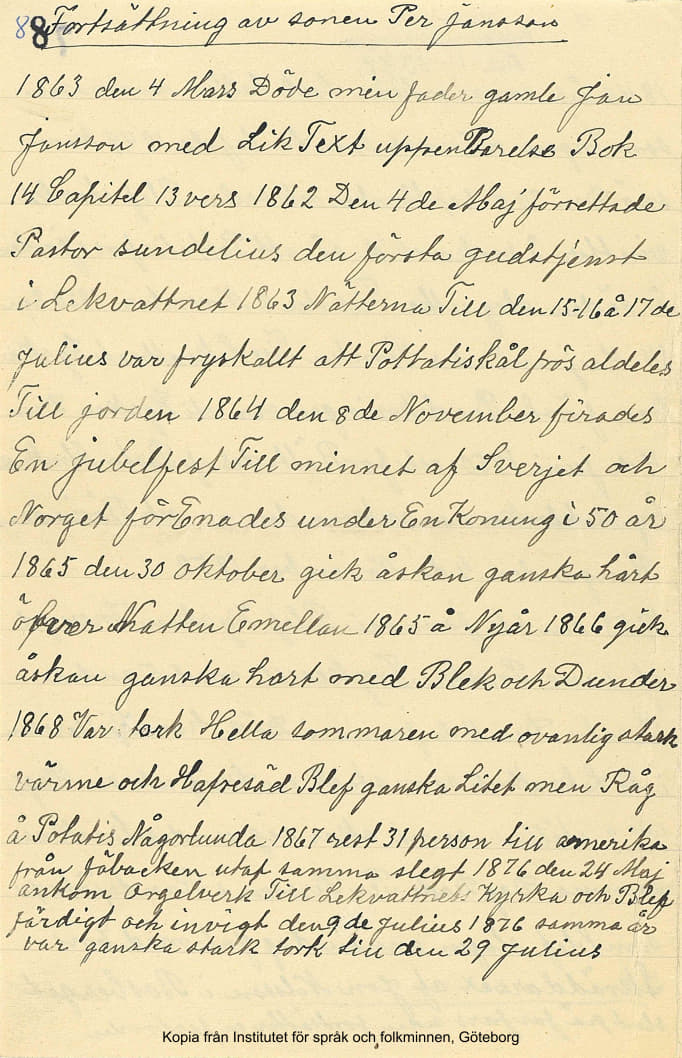 88 Fortsättning av sonen Per Jansson
1863 den 4 Mars Döde min fader gamle Jan
Jansson med Lik Text uppenbarelse Bok
14 Capitel 13 vers 1862 Den 4 de Maj förrettade
Pastor sundelius den första gudstjenst
i Lekvattnet 1863 Nätterna Till den 15-16 å 17 de
Julius var fryskallt att Pottatiskål frös aldeles
Till jorden 1864 den 8 de November firades
En jubelfest Till minnet af Sverjet och
Norget förEnades under En Konung i 50 år
1865 den 30 oktober gick åskan ganska hårt
öfver Natten Emellan 1865 å Nyår 1866 gick
åskan ganska hart med Blek och Dunder
1868 Var tork Hella sommaren med ovanlig stark
värme och Hafresäd Blef ganska Litet men Råg
å Potatis Någorlunda 1867 rest 31 person till amerika
från fäbacken utaf samma slegt 1876 den 24 Maj
ankom Orgelverk Till Lekvattnets Kyrka och Blef
färdigt och invigt den 9 de Julius 1876 samma år
var ganska stark tork till den 29 Julius
Kopia från Institutet för språk och folkminnen, Göteborg